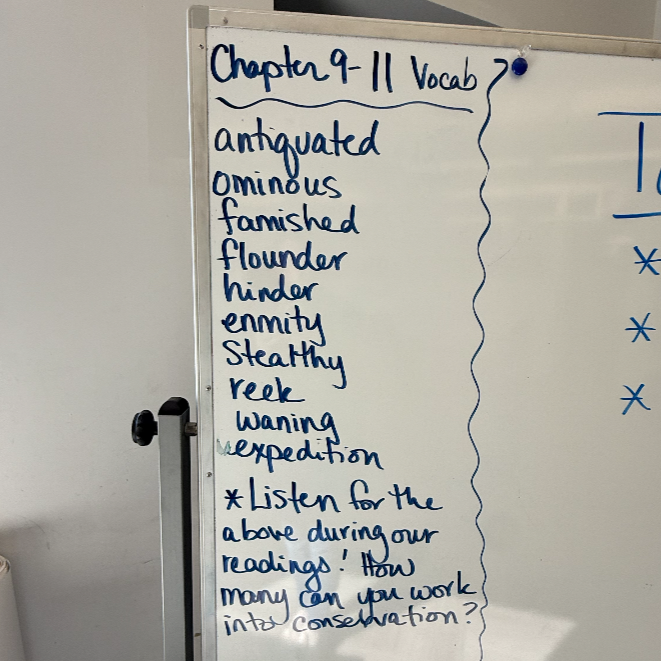 Chapter 9-11 Vocab
antiquated
ominous
famished
flounder
hinder
enmity
Stealthy
reek
waning
expedition
*Listen for the
above during our
readings! How
many can you work
into conservation?
*
*
*